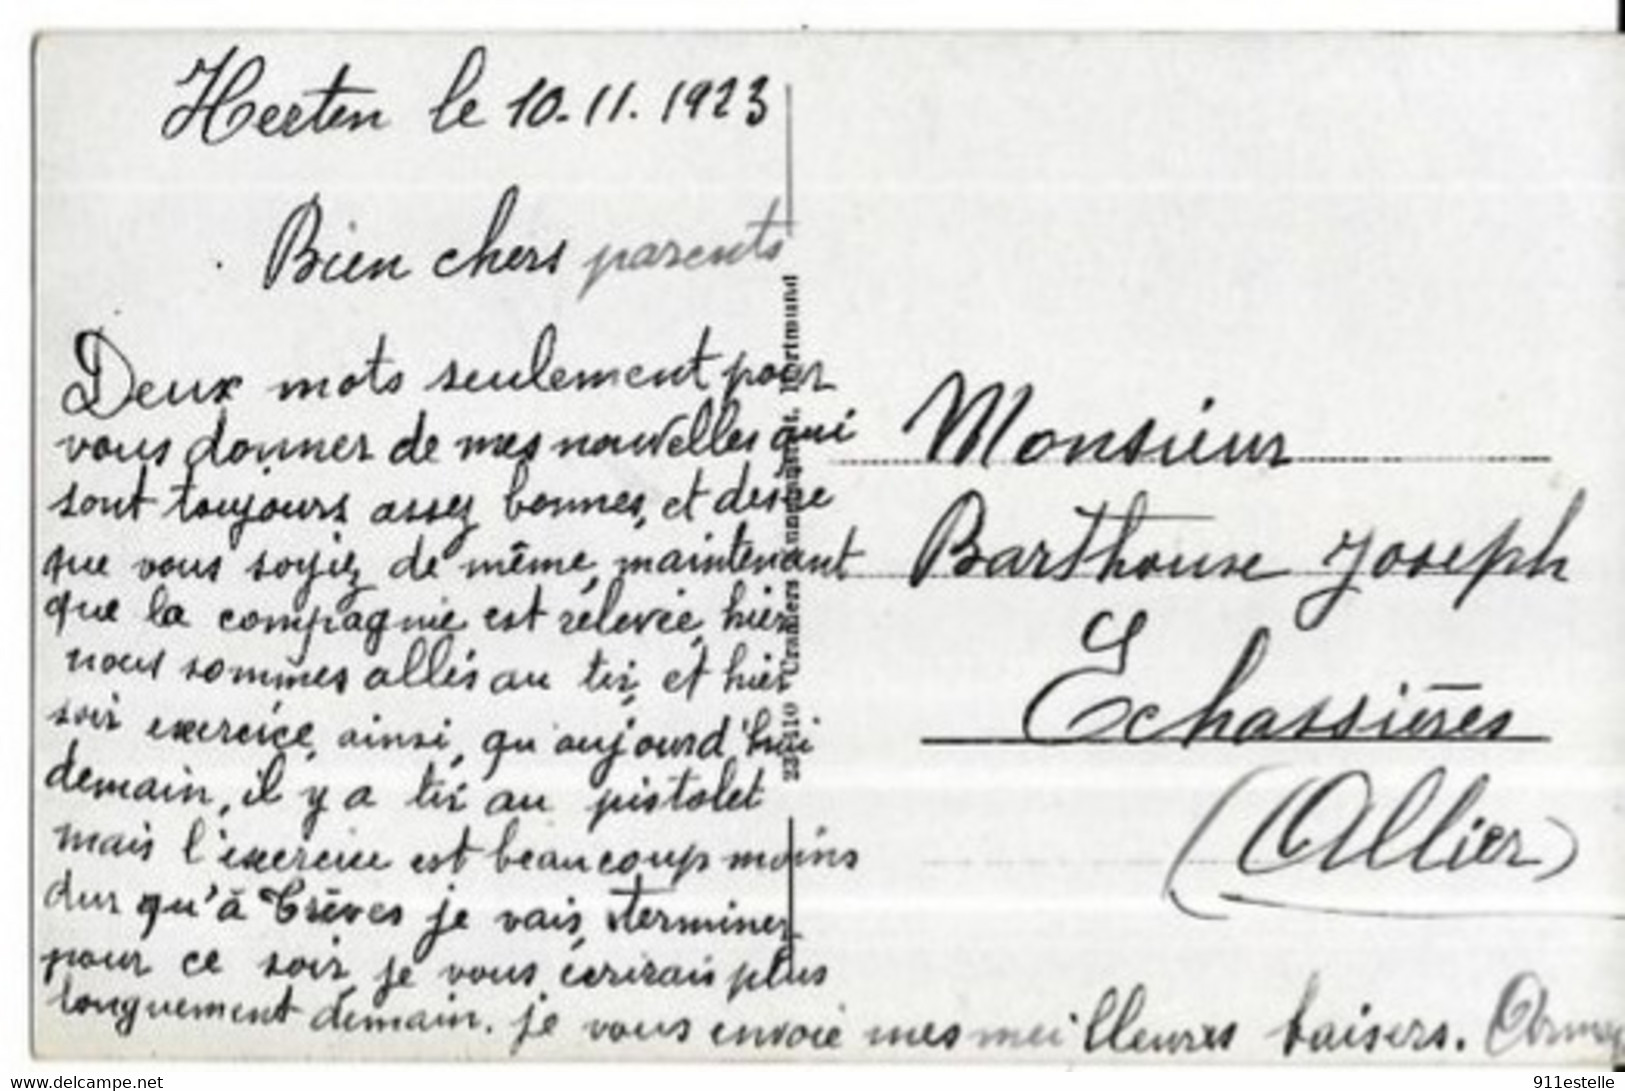 Heeten le 10.11.1923
Bien chers parents
Deux mots seulement pour
vous donner de mes nouvelles qui
sont toujours assez bonnes, et desire
que vous soyiez de même, maintenant
que la compagnie est rélevée, hier
nous sommes allés au tir, et hier
soir exercice, ainsi, qu'aujourd'hui
demain, il y a tir au pistolet
mais l'exercice est beaucoup moins
dur qu'à Trèves je vais, terminer
pour ce soir, je vous écrirais plus
longuement demain. je vous envoie mes meilleures baisers.
Monsieur
Barthouse Joseph
Echassières
(Allier)
23410 Cramers Dortmund
www.delcampe.net
911estelle